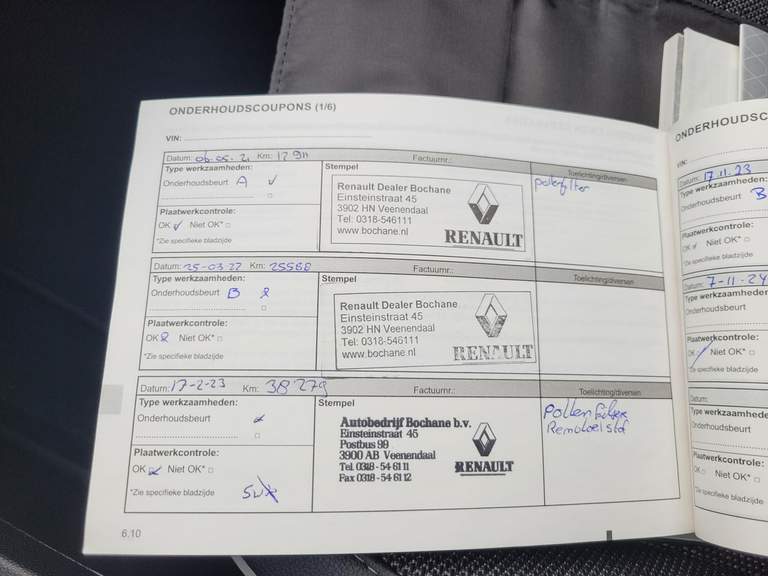 ONDERHOUDSCOUPONS (1/6)
VIN:
Datum: 06-05-21 Km: 12911 Factuurnr.:
Type werkzaamheden: Stempel Toelichting/diversen
Onderhoudsbeurt A
Renault Dealer Bochane
Einsteinstraat 45
3902 HN Veenendaal
Tel: 0318-546111
www.bochane.nl
RENAULT
pollenfilter
Plaatwerkcontrole:
OK Niet OK*
*Zie specifieke bladzijde
Datum: 25-03-22 Km: 25568 Factuurnr.:
Type werkzaamheden: Stempel Toelichting/diversen
Onderhoudsbeurt B
Renault Dealer Bochane
Einsteinstraat 45
3902 HN Veenendaal
Tel: 0318-546111
www.bochane.nl
RENAULT
Plaatwerkcontrole:
OK Niet OK*
*Zie specifieke bladzijde
Datum: 17-2-23 Km: 38279 Factuurnr.:
Type werkzaamheden: Stempel Toelichting/diversen
Onderhoudsbeurt
Autobedrijf Bochane b.v.
Einsteinstraat 45
Postbus 99
3900 AB Veenendaal
Tel. 0318 - 54 61 11
Fax 0318 - 54 61 12
RENAULT
Pollen
Remvloeistof
Plaatwerkcontrole:
OK Niet OK*
*Zie specifieke bladzijde
6.10
ONDERHOUDSC
VIN:
Datum: 17.11.23
Type werkzaamheden
Onderhoudsbeurt B
Plaatwerkcontrole:
OK Niet OK*
*Zie specifieke bladzijde
Datum: 7-11-24
Type werkzaamheden
Onderhoudsbeurt
Plaatwerkcontrole:
OK Niet OK*
*Zie specifieke bladzijde
Datum:
Type werkzaamhede
Onderhoudsbeurt
Plaatwerkcontrole:
OK Niet OK*
*Zie specifieke bladzijde